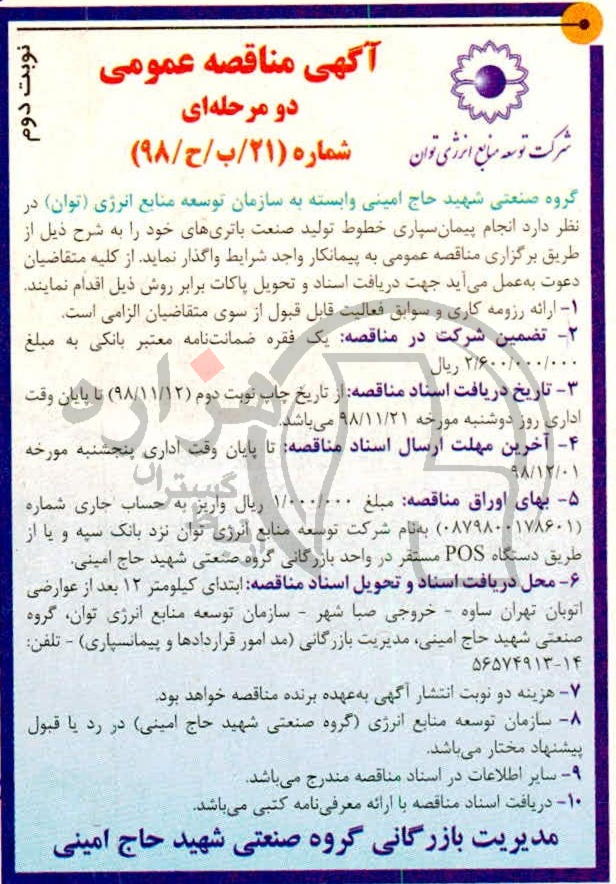 نوبت دوم
آگهی مناقصه عمومی
دو مرحله‌ای
شماره (۲۱/ب/ح/۹۸)
شرکت توسعه منابع انرژی توان
گروه صنعتی شهید حاج امینی وابسته به سازمان توسعه منابع انرژی (توان) در
نظر دارد انجام پیمان‌سپاری خطوط تولید صنعت باتری‌های خود را به شرح ذیل از
طریق برگزاری مناقصه عمومی به پیمانکار واجد شرایط واگذار نماید. از کلیه متقاضیان
دعوت به‌عمل می‌آید جهت دریافت اسناد و تحویل پاکات برابر روش ذیل اقدام نمایند.
۱- ارائه رزومه کاری و سوابق فعالیت قابل قبول از سوی متقاضیان الزامی است.
۲- تضمین شرکت در مناقصه: یک فقره ضمانت‌نامه معتبر بانکی به مبلغ
۲/۶۰۰/۰۰۰/۰۰۰ ریال
۳- تاریخ دریافت اسناد مناقصه: از تاریخ چاپ نوبت دوم (۹۸/۱۱/۱۲) تا پایان وقت
اداری روز دوشنبه مورخه ۹۸/۱۱/۲۱ می‌باشد.
۴- آخرین مهلت ارسال اسناد مناقصه: تا پایان وقت اداری پنجشنبه مورخه
۹۸/۱۲/۰۱
۵- بهای اوراق مناقصه: مبلغ ۱/۰۰۰/۰۰۰ ریال واریز به حساب جاری شماره
(۰۸۷۹۸۰۰۱۷۸۶۰۱) به‌نام شرکت توسعه منابع انرژی توان نزد بانک سپه و یا از
طریق دستگاه POS مستقر در واحد بازرگانی گروه صنعتی شهید حاج امینی.
۶- محل دریافت اسناد و تحویل اسناد مناقصه: ابتدای کیلومتر ۱۲ بعد از عوارضی
اتوبان تهران ساوه - خروجی صبا شهر - سازمان توسعه منابع انرژی توان، گروه
صنعتی شهید حاج امینی، مدیریت بازرگانی (مد امور قراردادها و پیمانسپاری) - تلفن:
۵۶۵۷۴۹۱۳-۱۴
۷- هزینه دو نوبت انتشار آگهی به‌عهده برنده مناقصه خواهد بود.
۸- سازمان توسعه منابع انرژی (گروه صنعتی شهید حاج امینی) در رد یا قبول
پیشنهاد مختار می‌باشد.
۹- سایر اطلاعات در اسناد مناقصه مندرج می‌باشد.
۱۰- دریافت اسناد مناقصه با ارائه معرفی‌نامه کتبی می‌باشد.
مدیریت بازرگانی گروه صنعتی شهید حاج امینی
هزاره
گستران